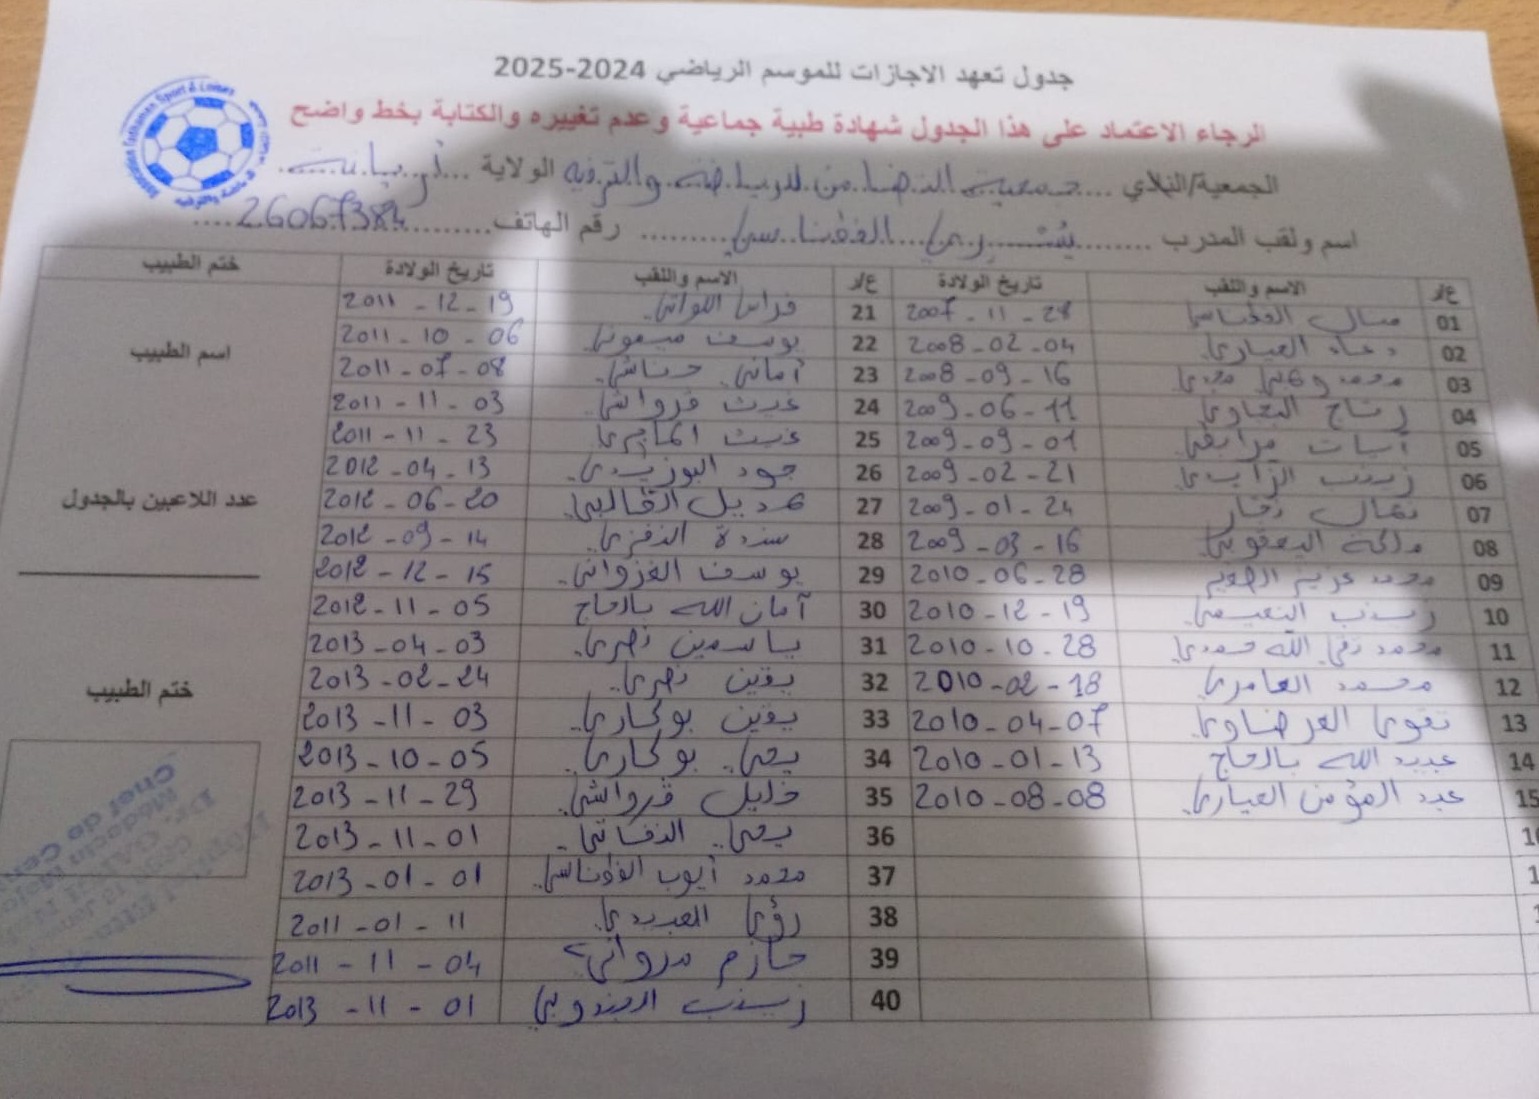 جدول تعهد الاجازات للموسم الرياضي 2024-2025
الرجاء الاعتماد على هذا الجدول شهادة طبية جماعية وعدم تغييره والكتابة بخط واضح
الجمعية/النادي ... جمعية التضامن للرياضة والترفيه الولاية ... أريانة
اسم ولقب المدرب ........ يسرى ........ رقم الهاتف ........ 26067384
ع/ر الاسم واللقب تاريخ الولادة ع/ر الاسم واللقب تاريخ الولادة ختم الطبيب
01 2007 - 11 - 28 21 فراس اللواتي 2011 - 12 - 19
02 دعاء العياري 2008 - 02 - 04 22 يوسف ميموني 2011 - 10 - 06
اسم الطبيب
03 محمد 2008 - 09 - 16 23 أماني حناشي 2011 - 07 - 08
04 2009 - 06 - 11 24 غيث قرواشي 2011 - 11 - 03
05 آيات مرابطي 2009 - 09 - 01 25 غيث الماجري 2011 - 11 - 23
06 زينب الزايدي 2009 - 02 - 21 26 جود البوزيدي 2012 - 04 - 13
عدد اللاعبين بالجدول
07 نهال 2009 - 01 - 24 27 هديل 2012 - 06 - 20
08 ملكة اليعقوبي 2009 - 03 - 16 28 سندة النفزي 2012 - 09 - 14
09 محمد عزيز 2010 - 06 - 28 29 يوسف الغزواني 2012 - 12 - 15
10 زينب النعيمي 2010 - 12 - 19 30 أمان الله بالحاج 2012 - 11 - 05
11 محمد تقي الله حمدي 2010 - 10 - 28 31 ياسمين نصري 2013 - 04 - 03
12 محمد العامري 2010 - 02 - 18 32 يقين نصري 2013 - 02 - 24
ختم الطبيب
13 تقوى العرضاوي 2010 - 04 - 07 33 يقين بوكاري 2013 - 11 - 03
14 عبد الله بالحاج 2010 - 01 - 13 34 يحي بوكاري 2013 - 10 - 05
15 عبد المؤمن العياري 2010 - 08 - 08 35 خليل قرواشي 2013 - 11 - 29
36 يحي 2013 - 11 - 01
37 محمد أيوب 2013 - 01 - 01
38 رؤى العبيدي 2011 - 01 - 11
39 حازم مرواني 2011 - 11 - 04
40 زينب الجندوبي 2013 - 11 - 01